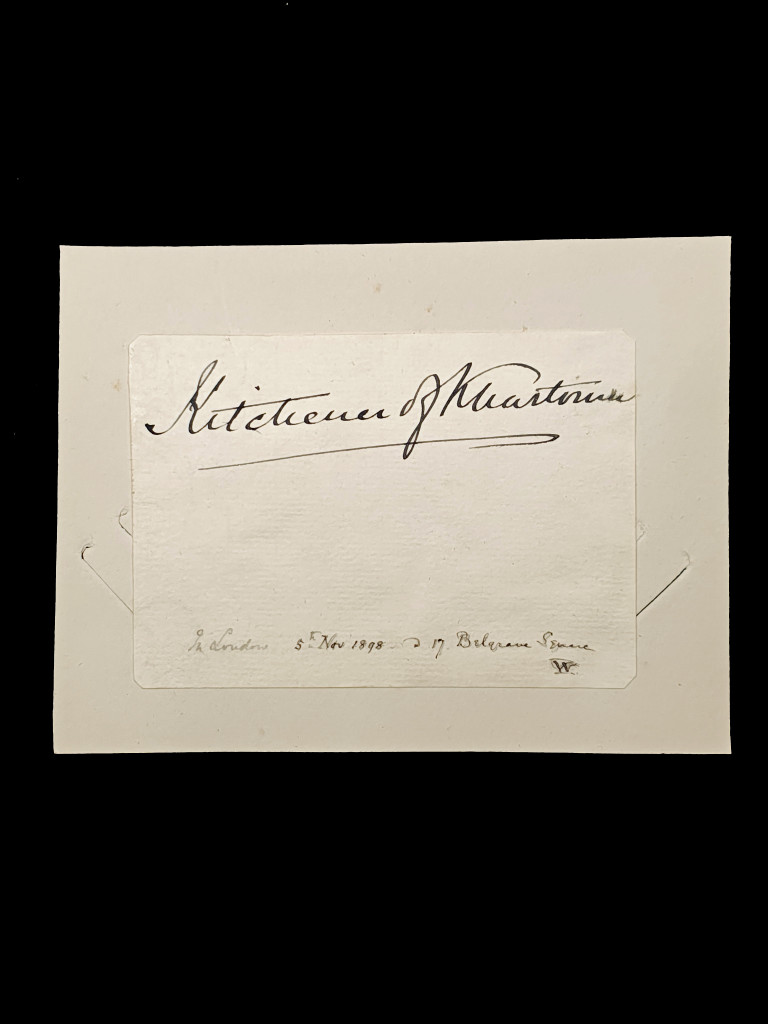 Kitchener of Khartoum
In London 5th Nov 1898 17 Belgrave Square
W.